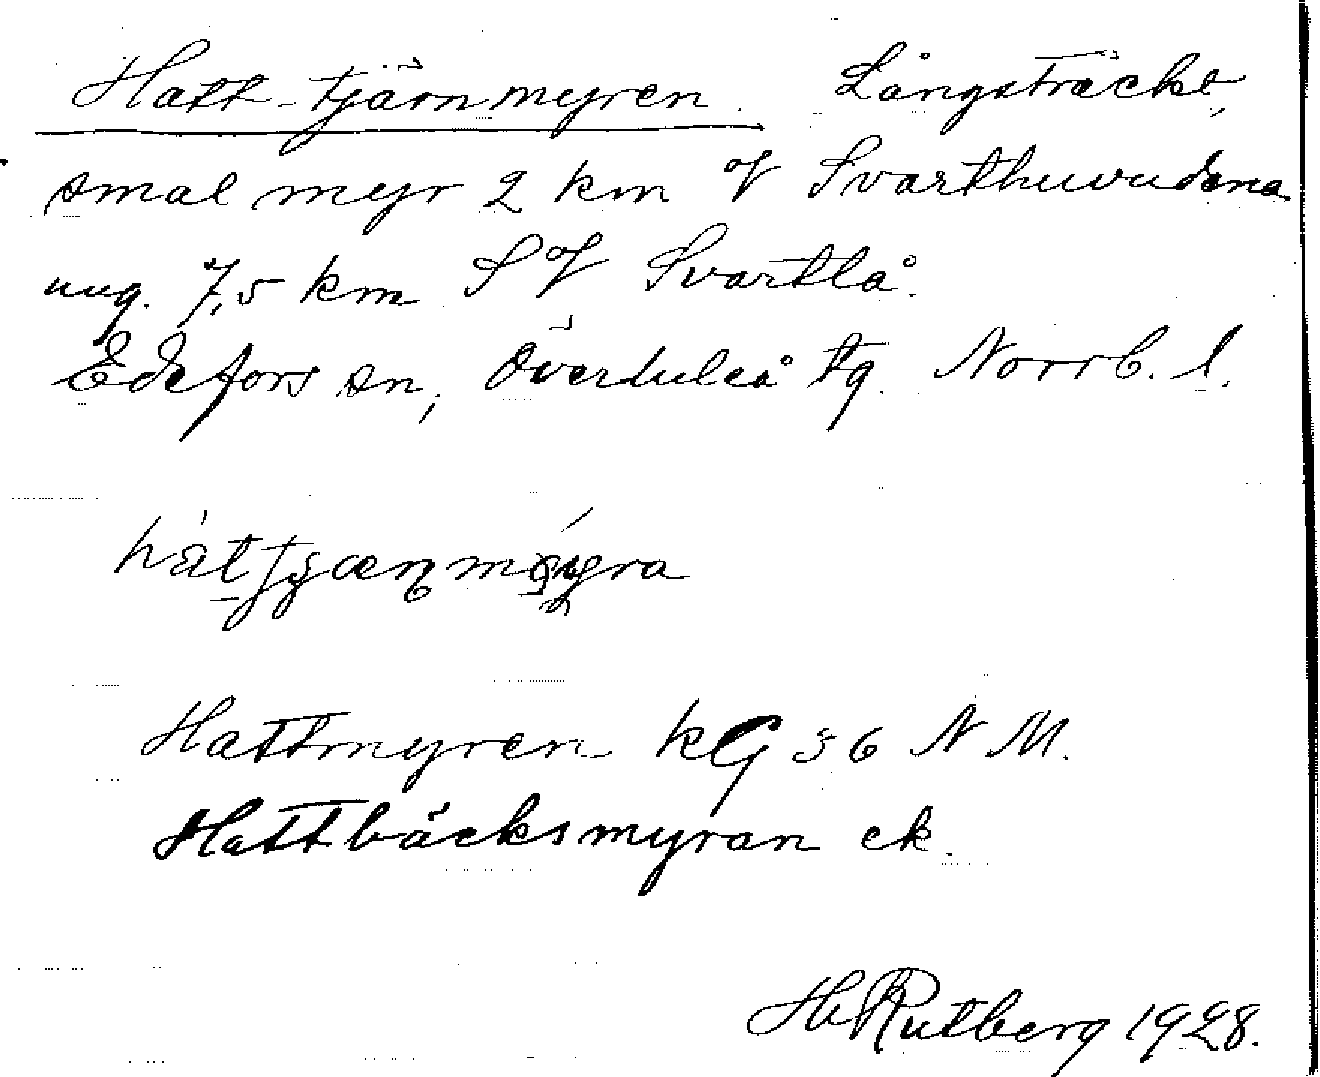 Hatt-tjärnmyren. Långsträckt,
smal myr 2 km V Svarthuvudena
ung. 7,5 km S V Svartlå.
Edefors sn, Överluleå tg. Norrb. l.
Hattmyren kG 36 N M.
Hattbäcksmyran ek.
H Rutberg 1928.